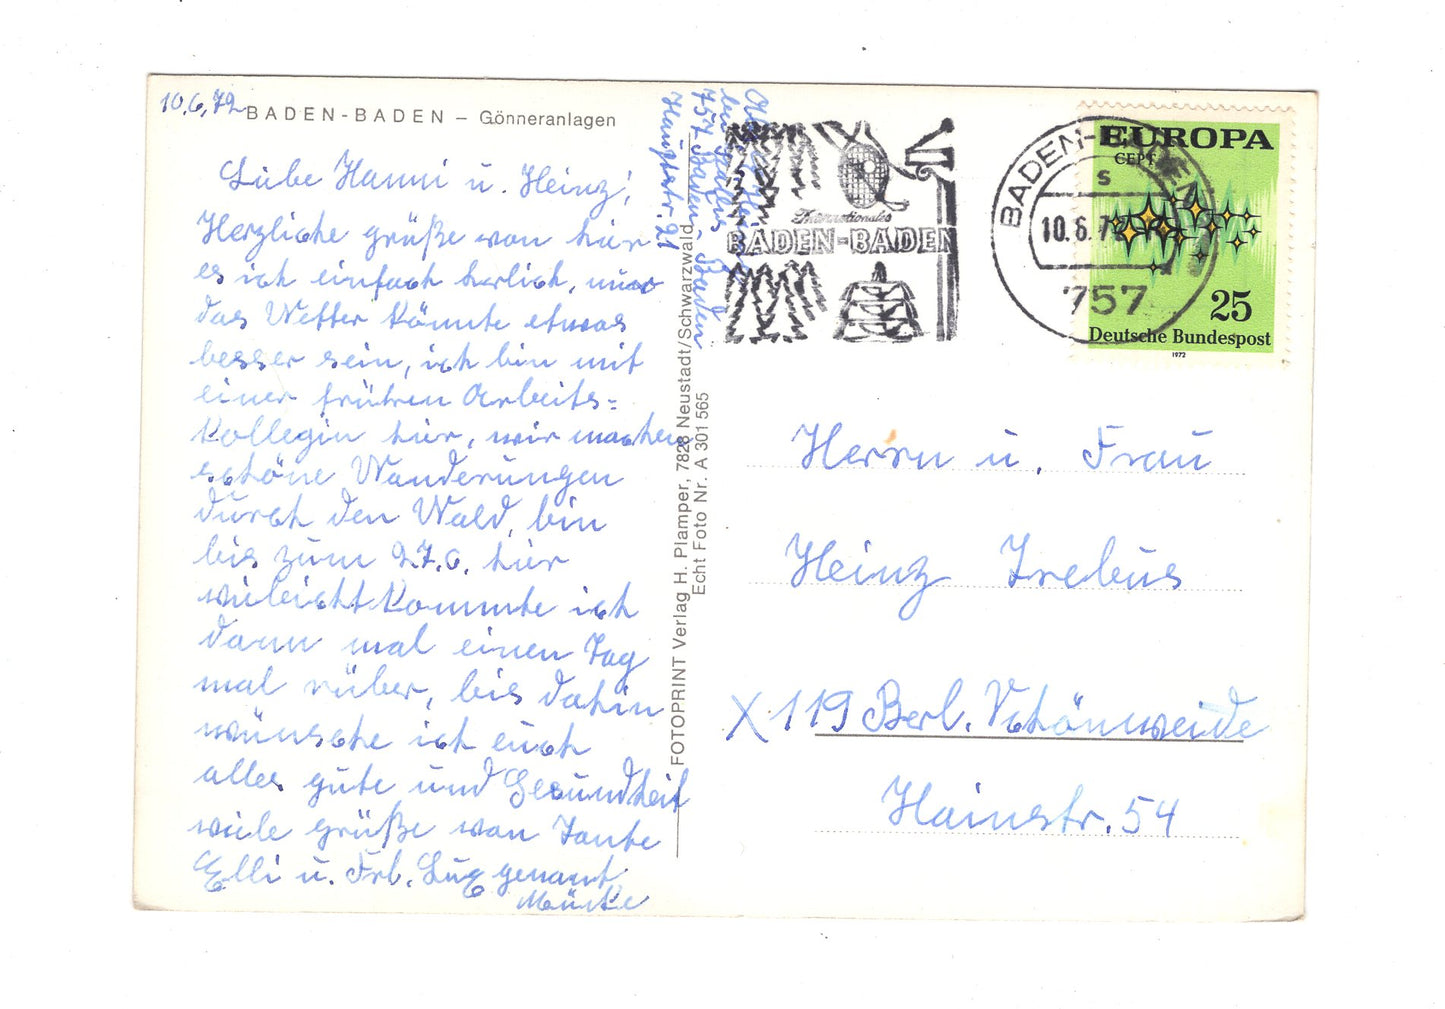 10.6.72
BADEN-BADEN – Gönneranlagen
Liebe Hanni u. Heinz!
Herzliche grüße von hier
es ich einfach herlich, nur
das Wetter könnte etwas
besser sein, ich bin mit
einer frühren Arbeits=
kollegin hier, wir machen
schöne Wanderungen
durch den Wald, bin
bis zum 27.6. hier
vieleicht kommte ich
dann mal einen Tag
mal rüber, bis dahin
wünsche ich euch
alles gute und Gesundheit
viele grüße von Tante
Elli u. Frl. Lux genannt
Mücke
bei
757 Baden-Baden
Hauptstr. 21
FOTOPRINT Verlag H. Plamper, 7828 Neustadt/Schwarzwald
Echt Foto Nr. A 301 565
Internationales
BADEN-BADEN
BADEN-BADEN
s
10.6.72
757
EUROPA
CEPT
25
Deutsche Bundespost
1972
Herrn u. Frau
Heinz Trebus
X 119 Berl. Schönweide
Hainstr. 54